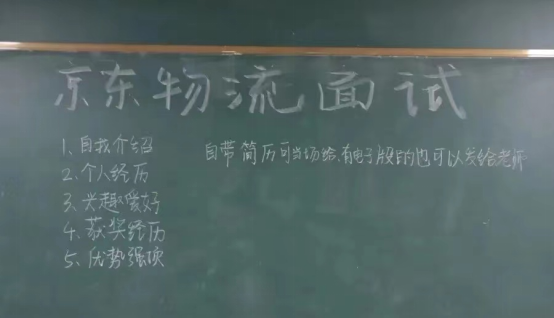 京东物流面试
1、自我介绍
自带简历可当场给,有电子版的也可以发给老师
2、个人经历
3、兴趣爱好
4、获奖经历
5、优势强项